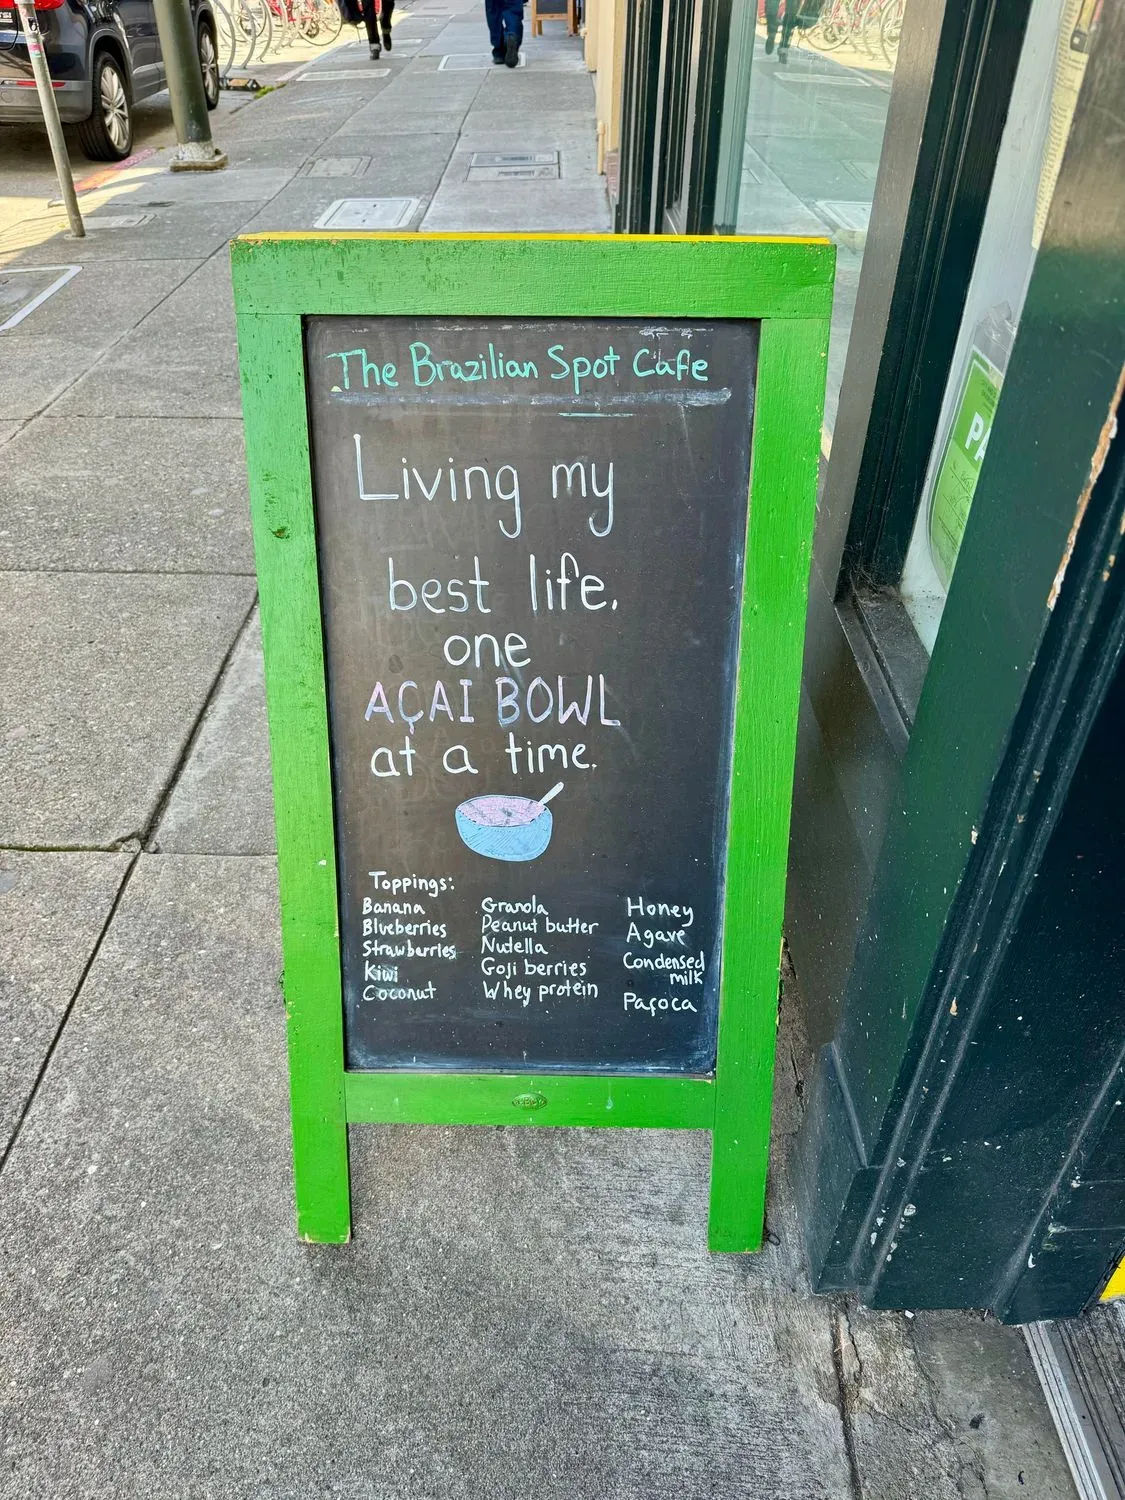 The Brazilian Spot Cafe
Living my
best life.
one
AÇAI BOWL
at a time.
Toppings:
Banana
Blueberries
Strawberries
Kiwi
Coconut
Granola
Peanut butter
Nutella
Goji berries
Whey protein
Honey
Agave
Condensed
milk
Paçoca
PA